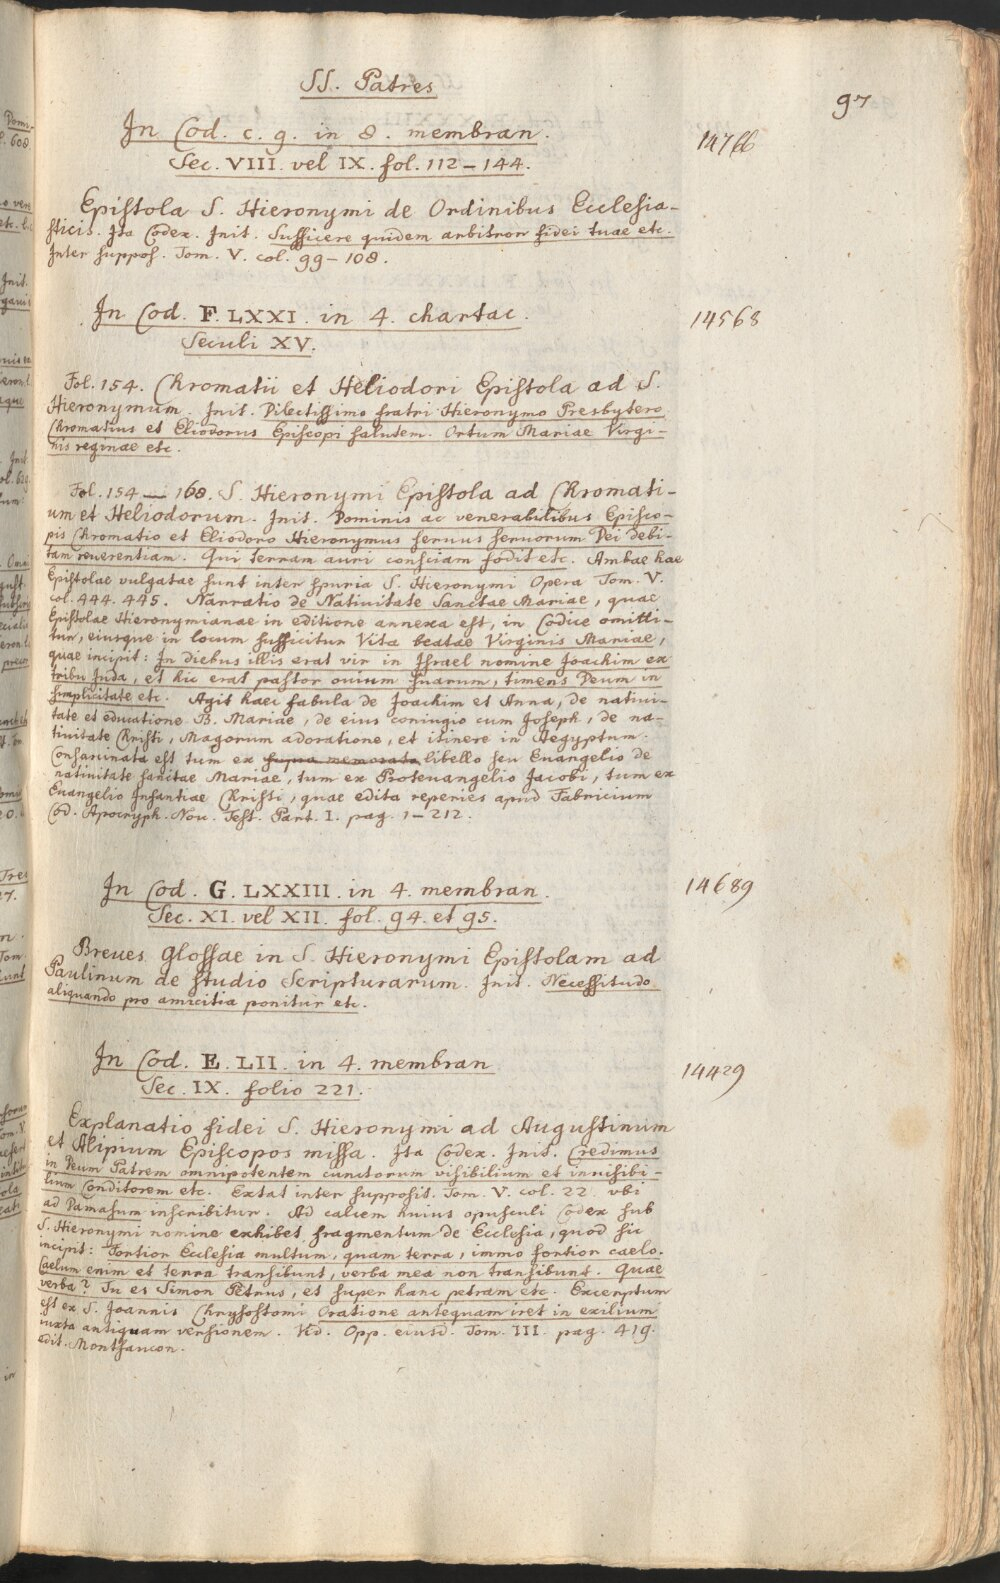 SS. Patres
97
In Cod. c. g. in 8. membran.
14766
Sec. VIII. vel IX. fol. 112–144.
Epistola S. Hieronymi de Ordinibus Ecclesia-
sticis. Ita Codex. Init. Sufficere quidem arbitror fidei tuae etc.
Inter suppos. Tom. V. col. 99–108.
In Cod. F. LXXI. in 4. chartac.
14568
Seculi XV.
Fol. 154. Chromatii et Heliodori Epistola ad S.
Hieronymum. Init. Dilectissimo fratri Hieronymo Presbytero
Chromatius et Eliodorus Episcopi salutem. Ortum Mariae Virgi-
nis reginae etc.
Fol. 154–168. S. Hieronymi Epistola ad Chromati-
um et Heliodorum. Init. Dominis ac venerabilibus Episco-
pis Chromatio et Eliodoro Hieronymus seruus seruorum Dei debi-
tam reuerentiam. Qui terram auri consciam fodit etc. Ambae hae
Epistolae vulgatae sunt inter spuria S. Hieronymi Opera Tom. V.
col. 444. 445. Narratio de Natiuitate Sanctae Mariae, quae
Epistolae Hieronymianae in editione annexa est, in Codice omitti-
tur, eiusque in locum sufficitur Vita beatae Virginis Mariae,
quae incipit: In diebus illis erat vir in Israel nomine Joachim ex
tribu Juda, et hic erat pastor ouium suarum, timens Deum in
simplicitate etc. Agit haec fabula de Joachim et Anna, de natiui-
tate et educatione B. Mariae, de eius coniugio cum Joseph, de na-
tiuitate Christi, Magorum adoratione, et itinere in Aegyptum.
Consarcinata est tum ex supra memorato libello seu Euangelio de
natiuitate sanctae Mariae, tum ex Proteuangelio Jacobi, tum ex
Euangelio Infantiae Christi, quae edita reperies apud Fabricium
Cod. Apocryph. Nov. Test. Part. I. pag. 1–212.
In Cod. G. LXXIII. in 4. membran.
14689
Sec. XI. vel XII. fol. 94. et 95.
Breues glossae in S. Hieronymi Epistolam ad
Paulinum de studio Scripturarum. Init. Necessitudo
aliquando pro amicitia ponitur etc.
In Cod. E. LII. in 4. membran
14429
Sec. IX. folio 221.
Explanatio fidei S. Hieronymi ad Augustinum
et Alipium Episcopos missa. Ita Codex. Init. Credimus
in Deum Patrem omnipotentem cunctorum visibilium et inuisibi-
lium Conditorem etc. Extat inter supposit. Tom. V. col. 22. vbi
ad Damasum inscribitur. Ad calcem huius opusculi Codex sub
S. Hieronymi nomine exhibet fragmentum de Ecclesia, quod sic
incipit: Fortior Ecclesia multum, quam terra, immo fortior caelo.
Caelum enim et terra transibunt, verba mea non transibunt. Quae
verba? Tu es Simon Petrus, et super hanc petram etc. Excerptum
est ex S. Joannis Chrysostomi Oratione antequam iret in exilium
iuxta antiquam versionem. Vid. Opp. eiusd. Tom. III. pag. 419.
edit. Montfaucon.